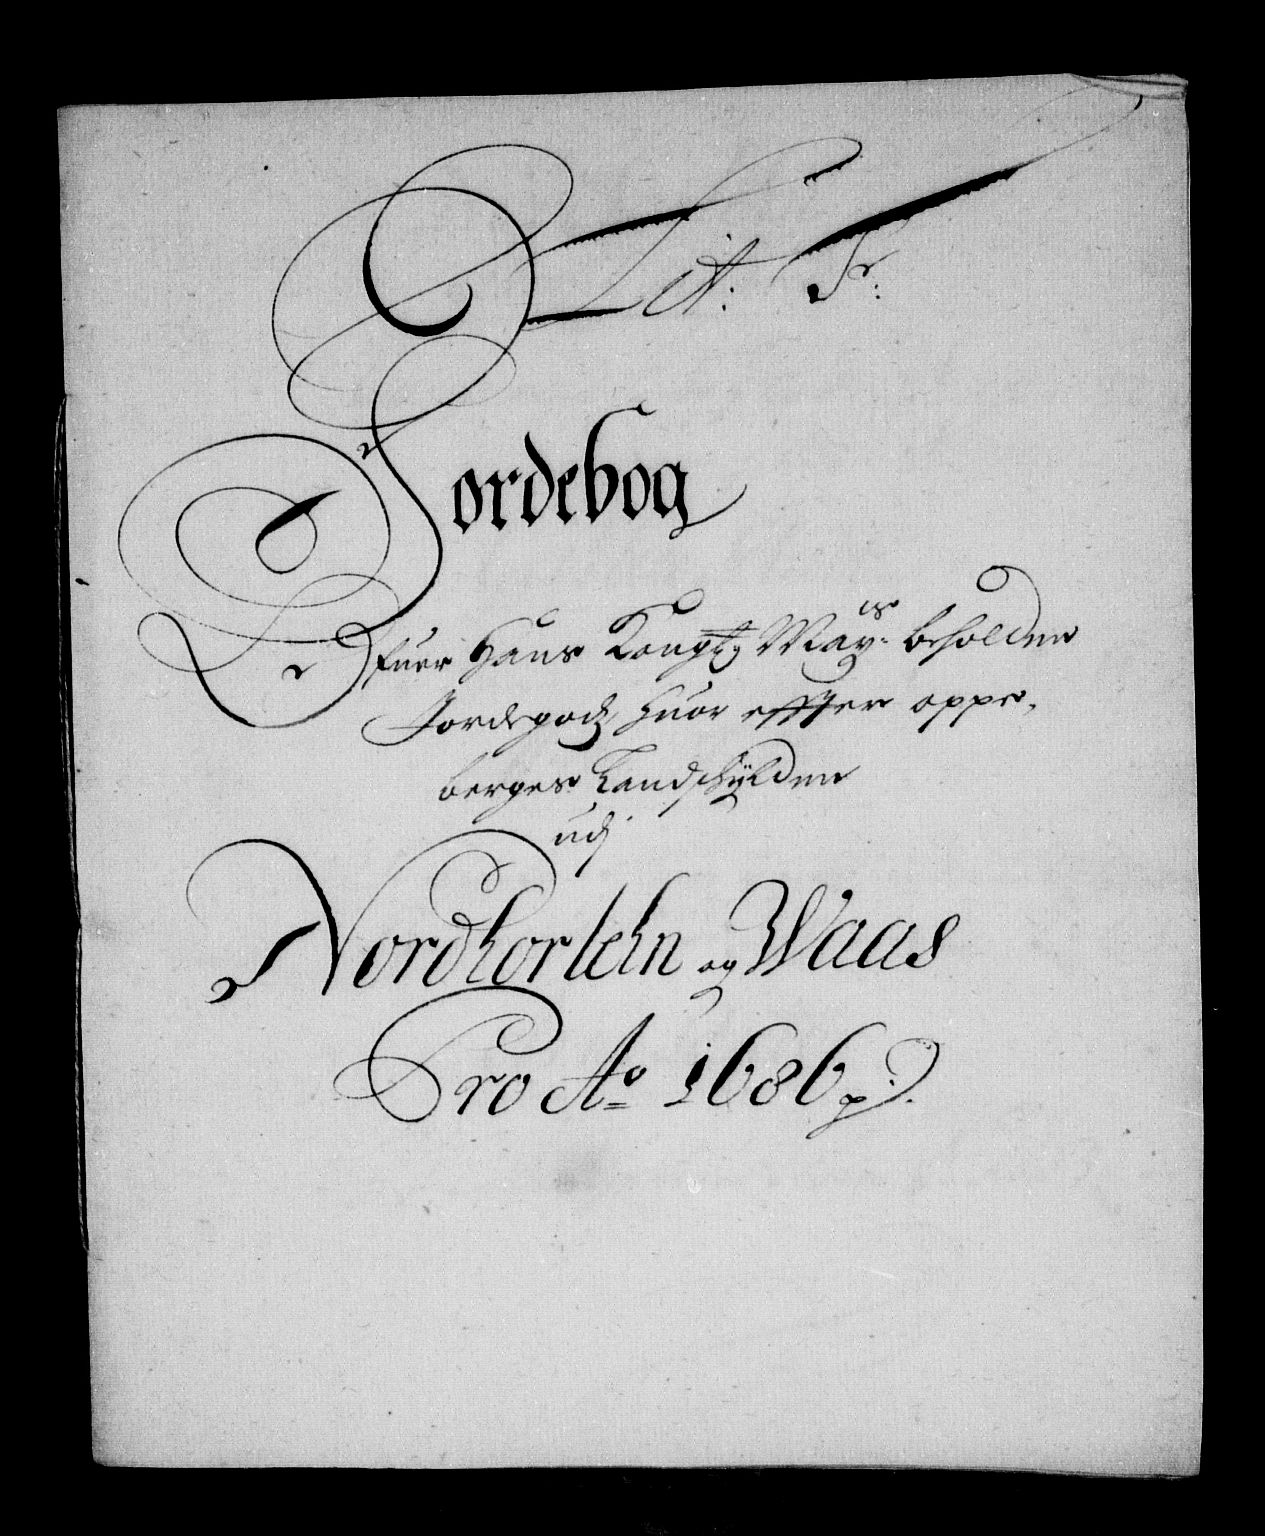 Lit: Fr:
Jordebog
Ofuer Hans Kongl: May:ts beholden
Jordegodz, huor effter oppe,
berges Landschÿlden
udj
Nordhorlehn og Waas
Pro Ao 1686